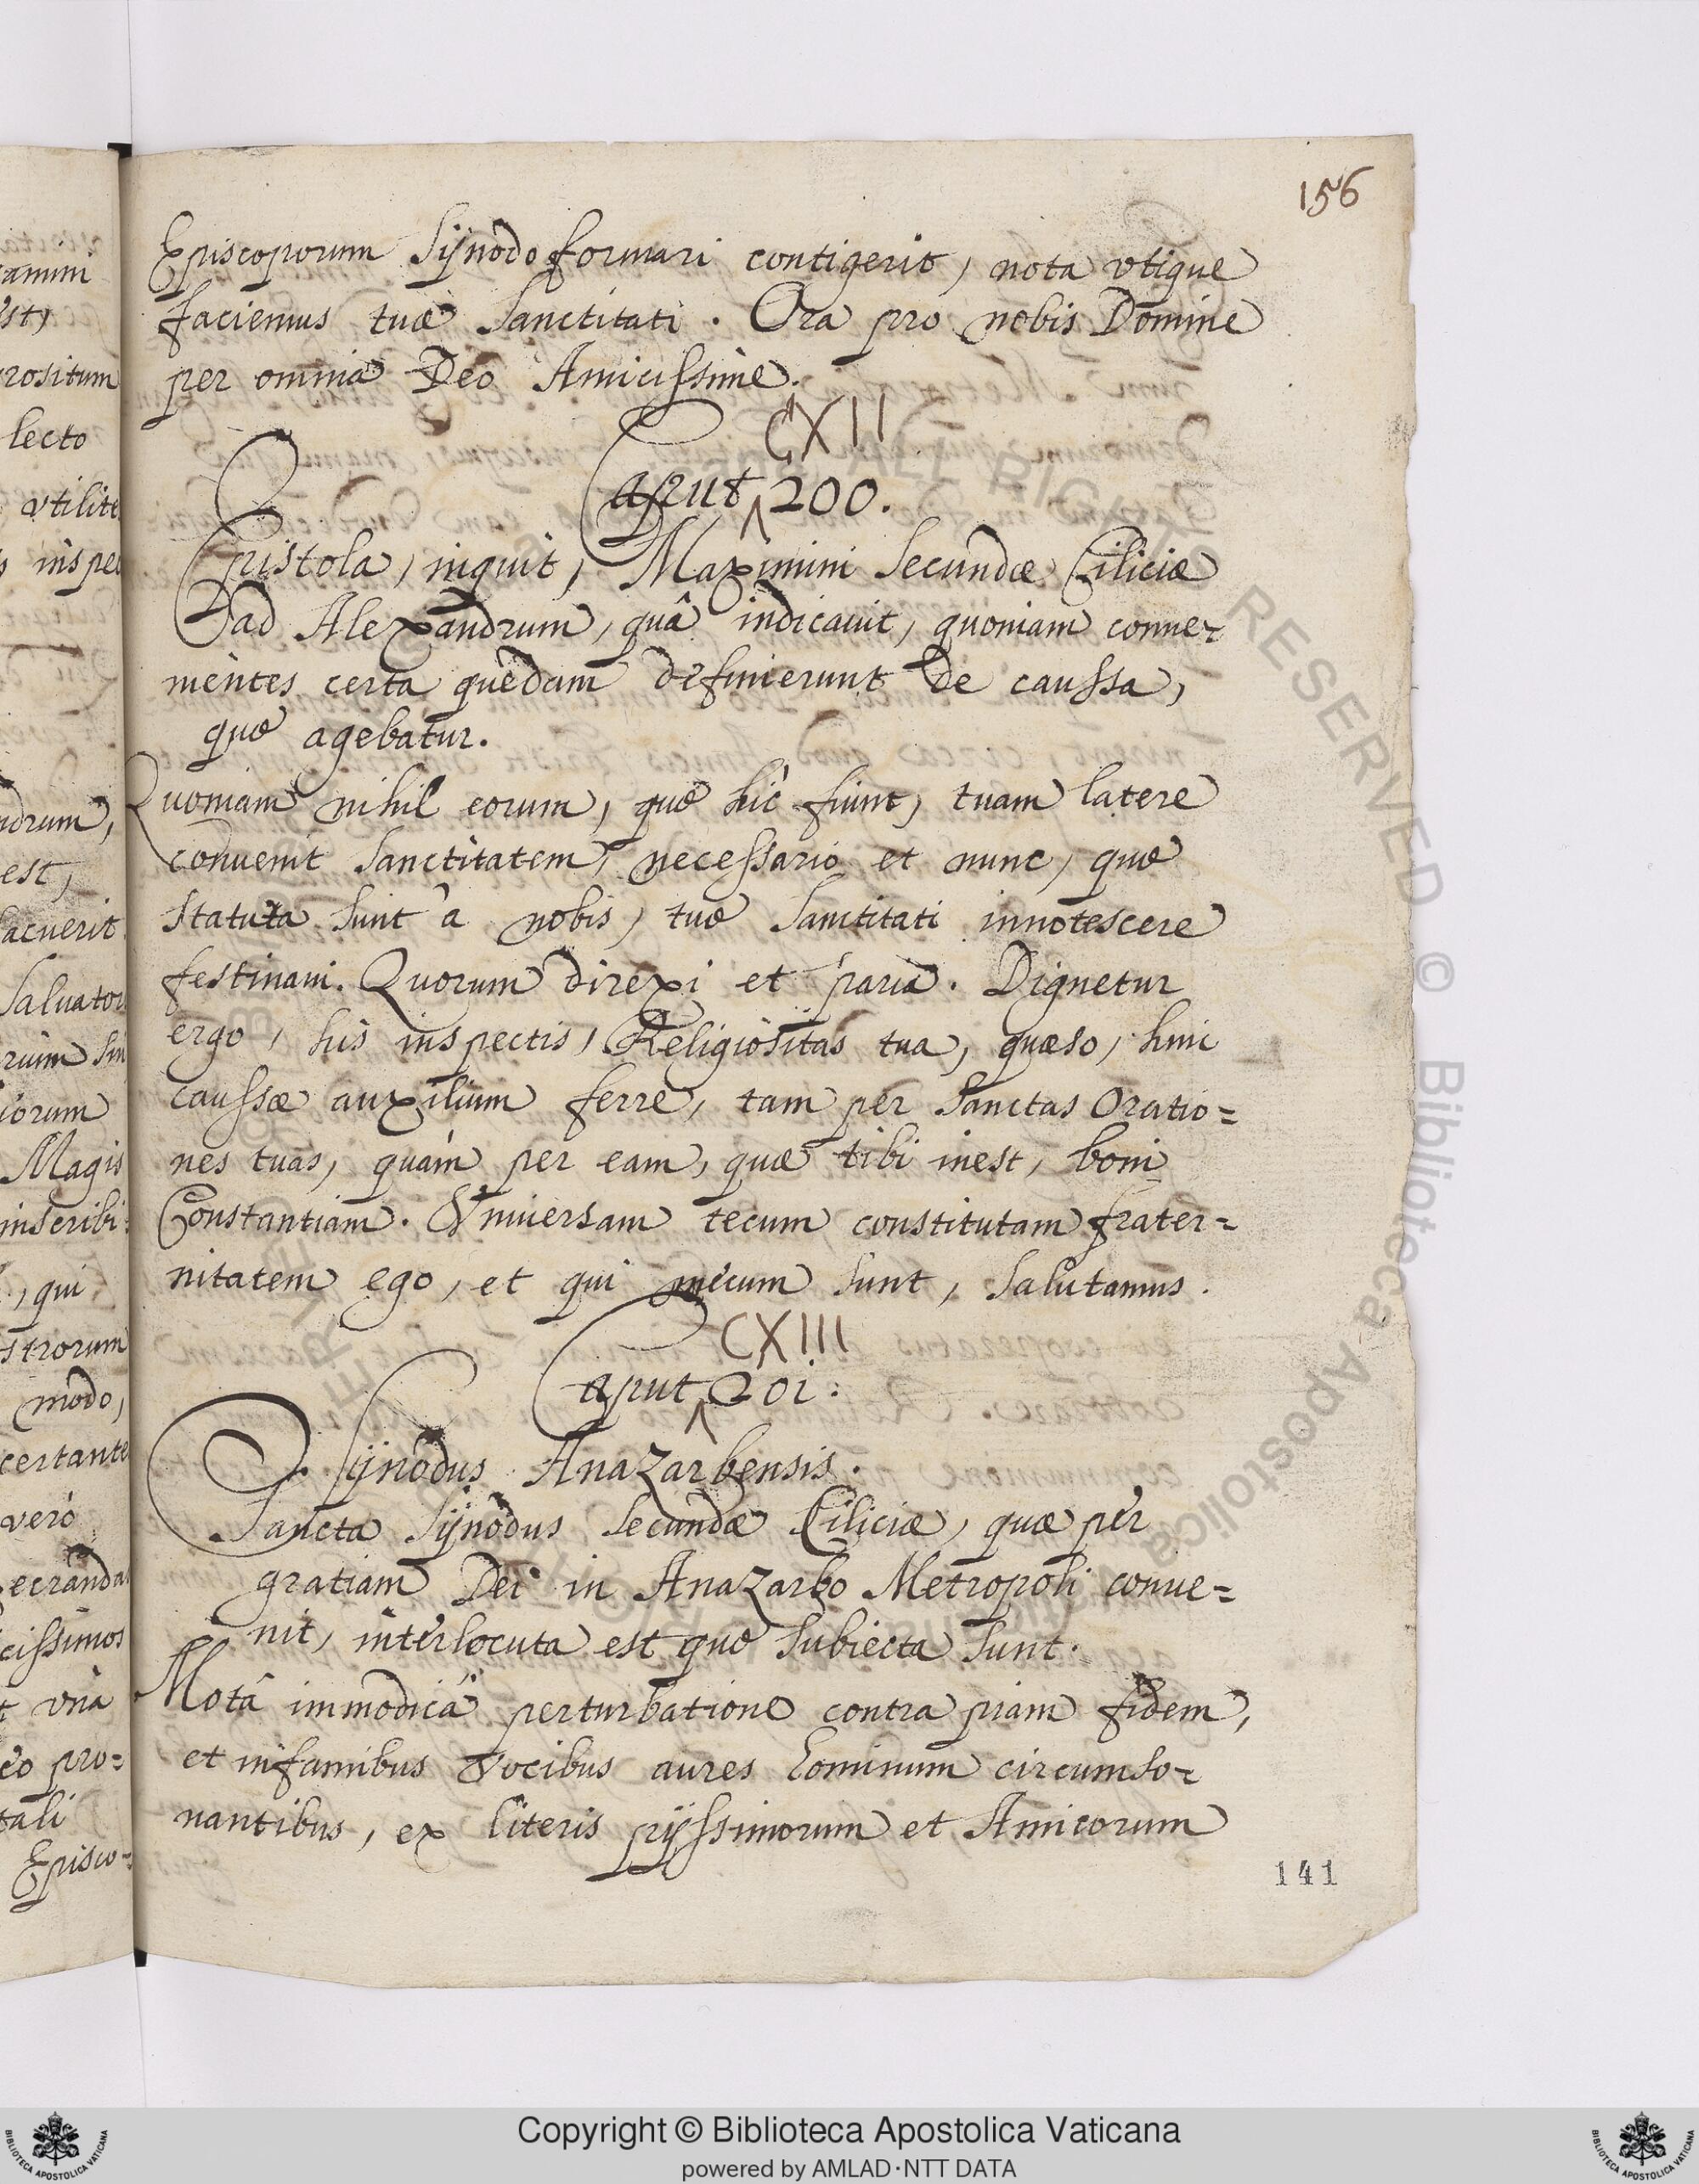 156
Episcoporum Sÿnodo formari contigerit, nota vtique
faciemus tuæ Sanctitati. Ora pro nobis Domine
per omnia Deo Amicissime.
CXII
Caput 200.
Epistola, inquit, Maximini Secundæ Ciliciæ
ad Alexandrum, quâ indicauit, quoniam conue-
nientes certa quędam definierunt de caussa,
quę agebatur.
Quoniam nihil eorum, quę hîc fiunt, tuam latere
conuenit Sanctitatem, necessario et nunc, quę
statuta sunt â nobis, tuę Sanctitati innotescere
festinaui. Quorum direxi et paria. Dignetur
ergo, his inspectis, Religiositas tua, quæso, huic
caussæ auxilium ferre, tam per Sanctas Oratio=
nes tuas, quàm per eam, quæ tibi inest, boni
Constantiam. Vniuersam tecum constitutam frater=
nitatem ego, et qui mecum sunt, salutamus.
CXIII
Caput 201.
Sÿnodus Anazarbensis.
Sancta Sÿnodus Secundæ Ciliciæ, quæ per
gratiam Dei in Anazarbo Metropoli conue=
nit, interlocuta est quę subiecta sunt.
Motâ immodicâ perturbatione contra piam fidem,
et infamibus vocibus aures hominum circumso=
nantibus, ex literis pijssimorum et Amicorum
141
amini
est,
rositum
lecto
vtilite
inspec
ndrum,
est,
acuerit
Saluator
iorum
Magis
inscribi
, qui
strorum
modo,
certante
verò
ecranda
cissimos
vnà
eo pro=
tali
Episco-
Copyright © Biblioteca Apostolica Vaticana
powered by AMLAD·NTT DATA